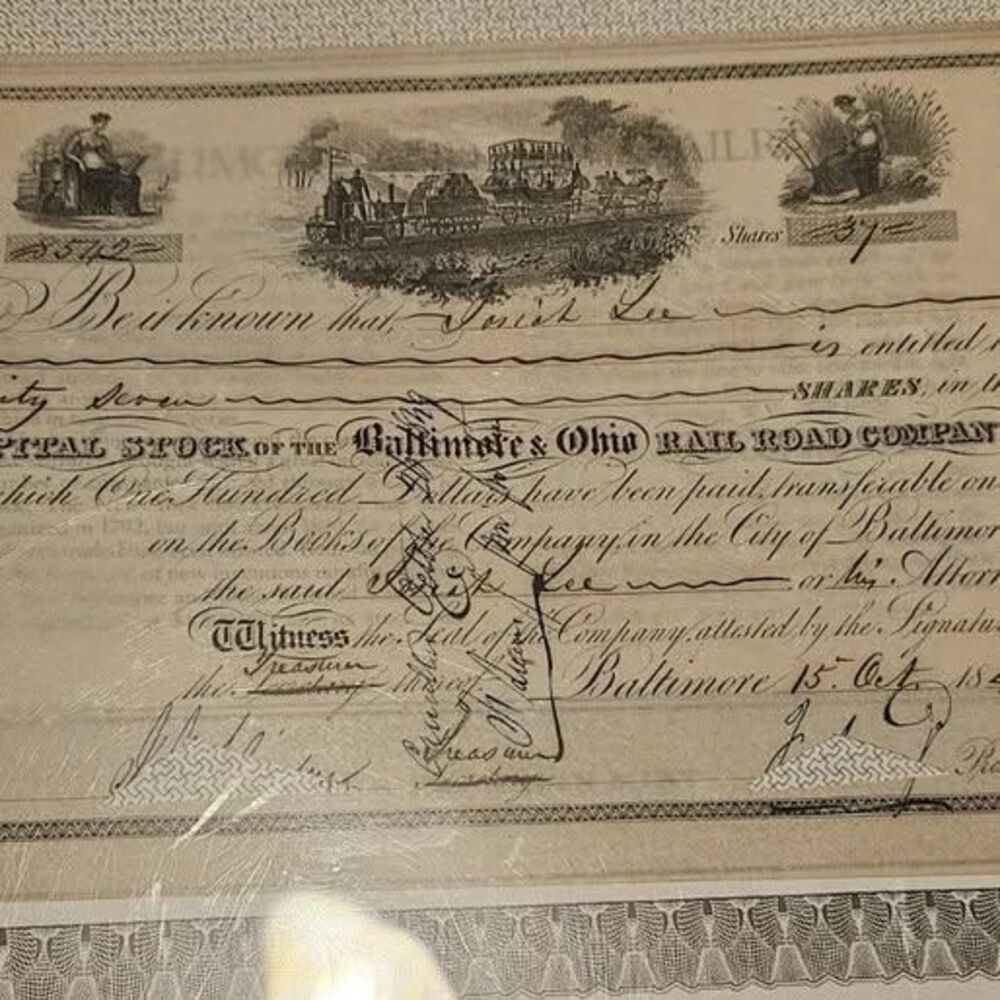 8542
Shares 37
Be it known that, Josiah Lee
is entitled
ity Seven SHARES, in th
PITAL STOCK OF THE Baltimore & Ohio RAIL ROAD COMPAN
hich One Hundred Dollars have been paid, transferable on
on the Books of the Company, in the City of Baltimor
the said Lee or his Attor
Witness the Seal of the Company, attested by the Signatu
Treasurer
the Secretary thereof Baltimore 15 Oct 18
Treasurer
Secretary